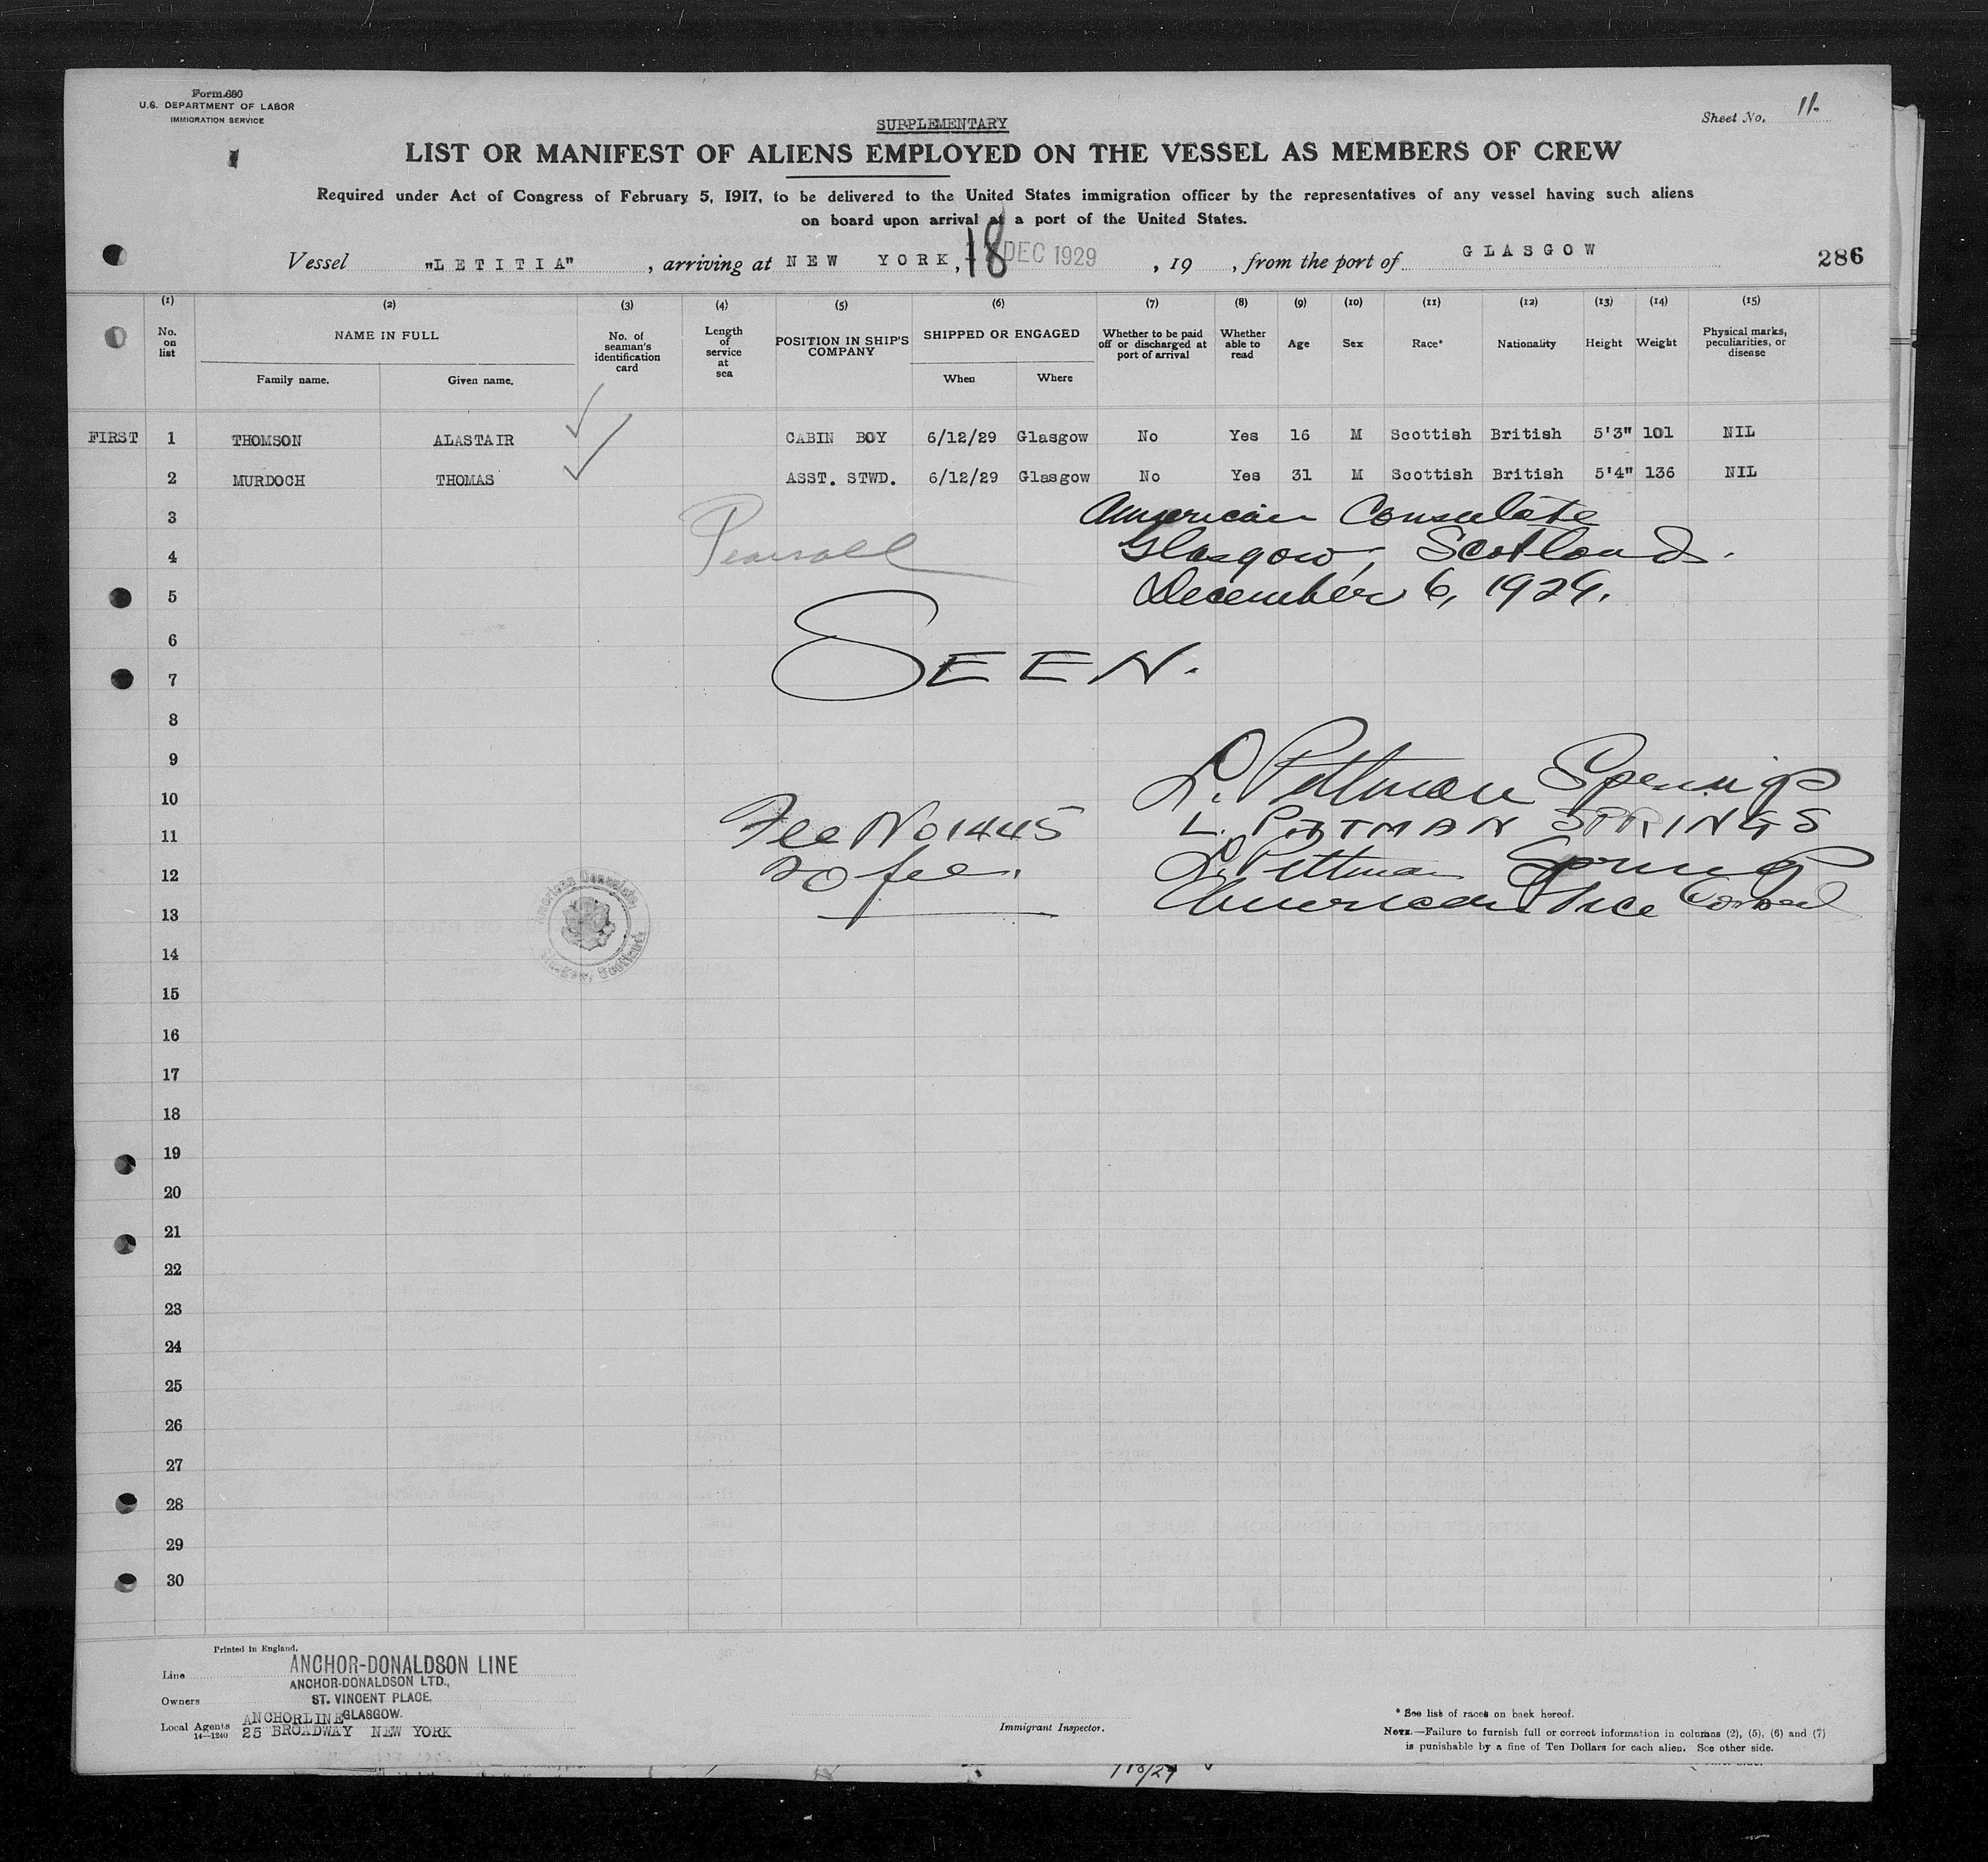 Form 680
U.S. DEPARTMENT OF LABOR
IMMIGRATION SERVICE
Sheet No. 11.
SUPPLEMENTARY
LIST OR MANIFEST OF ALIENS EMPLOYED ON THE VESSEL AS MEMBERS OF CREW
Required under Act of Congress of February 5, 1917, to be delivered to the United States immigration officer by the representatives of any vessel having such aliens
on board upon arrival at a port of the United States.
Vessel "LETITIA", arriving at NEW YORK, 18 DEC 1929, 19 , from the port of GLASGOW 286
(1) (2) (3) (4) (5) (6) (7) (8) (9) (10) (11) (12) (13) (14) (15)
No. on list NAME IN FULL Family name. Given name. No. of seaman's identification card Length of service at sea POSITION IN SHIP'S COMPANY SHIPPED OR ENGAGED When Where Whether to be paid off or discharged at port of arrival Whether able to read Age Sex Race* Nationality Height Weight Physical marks, peculiarities, or disease
FIRST 1 THOMSON ALASTAIR CABIN BOY 6/12/29 Glasgow No Yes 16 M Scottish British 5'3" 101 NIL
2 MURDOCH THOMAS ASST. STWD. 6/12/29 Glasgow No Yes 31 M Scottish British 5'4" 136 NIL
3 American Consulate
4 Pearsall Glasgow, Scotland.
5 December 6, 1929.
6
7 SEEN.
8
9
10 L. Pittman Springs
11 Fee No 1445 L. PITTMAN SPRINGS
12 no fee. L. Pittman Springs
13 American Vice Consul
American Consulate, Glasgow, Scotland
14
15
16
17
18
19
20
21
22
23
24
25
26
27
28
29
30
Printed in England.
Line ANCHOR-DONALDSON LINE
ANCHOR-DONALDSON LTD.,
Owners ST. VINCENT PLACE,
GLASGOW.
Local Agents ANCHORLINE
14—1240 25 BROADWAY NEW YORK
Immigrant Inspector.
* See list of races on back hereof.
NOTE.—Failure to furnish full or correct information in columns (2), (5), (6) and (7)
is punishable by a fine of Ten Dollars for each alien. See other side.